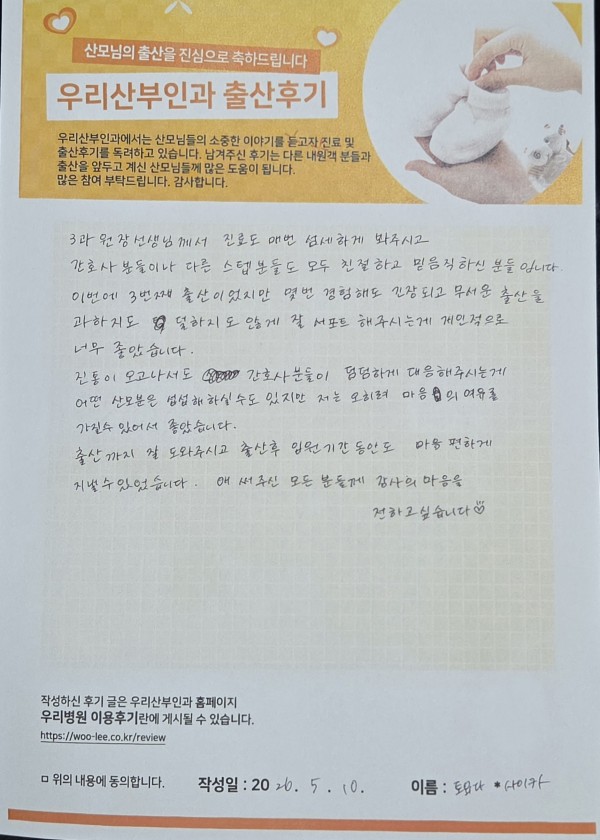 산모님의 출산을 진심으로 축하드립니다
우리산부인과 출산후기
우리산부인과에서는 산모님들의 소중한 이야기를 듣고자 진료 및
출산후기를 독려하고 있습니다. 남겨주신 후기는 다른 내원객 분들과
출산을 앞두고 계신 산모님들께 많은 도움이 됩니다.
많은 참여 부탁드립니다. 감사합니다.
3과 원장선생님께서 진료도 매번 섬세하게 봐주시고
간호사분들이나 다른 스텝분들도 모두 친절하고 믿음직하신 분들입니다.
이번에 3번째 출산이었지만 몇번 경험해도 긴장되고 무서운 출산을
과하지도 덜하지도 않게 잘 서포트 해주시는게 개인적으로
너무 좋았습니다.
진통이 오고나서도 간호사분들이 덤덤하게 대응해주시는게
어떤 산모분은 섭섭해하실수도 있지만 저는 오히려 마음의 여유를
가질수 있어서 좋았습니다.
출산까지 잘 도와주시고 출산후 입원기간동안도 마음 편하게
지낼수 있었습니다. 애써주신 모든 분들께 감사의 마음을
전하고싶습니다♡
작성하신 후기 글은 우리산부인과 홈페이지
우리병원 이용후기란에 게시될 수 있습니다.
https://woo-lee.co.kr/review
ㅁ 위의 내용에 동의합니다. 작성일 : 2026. 5. 10. 이름 : *사이카